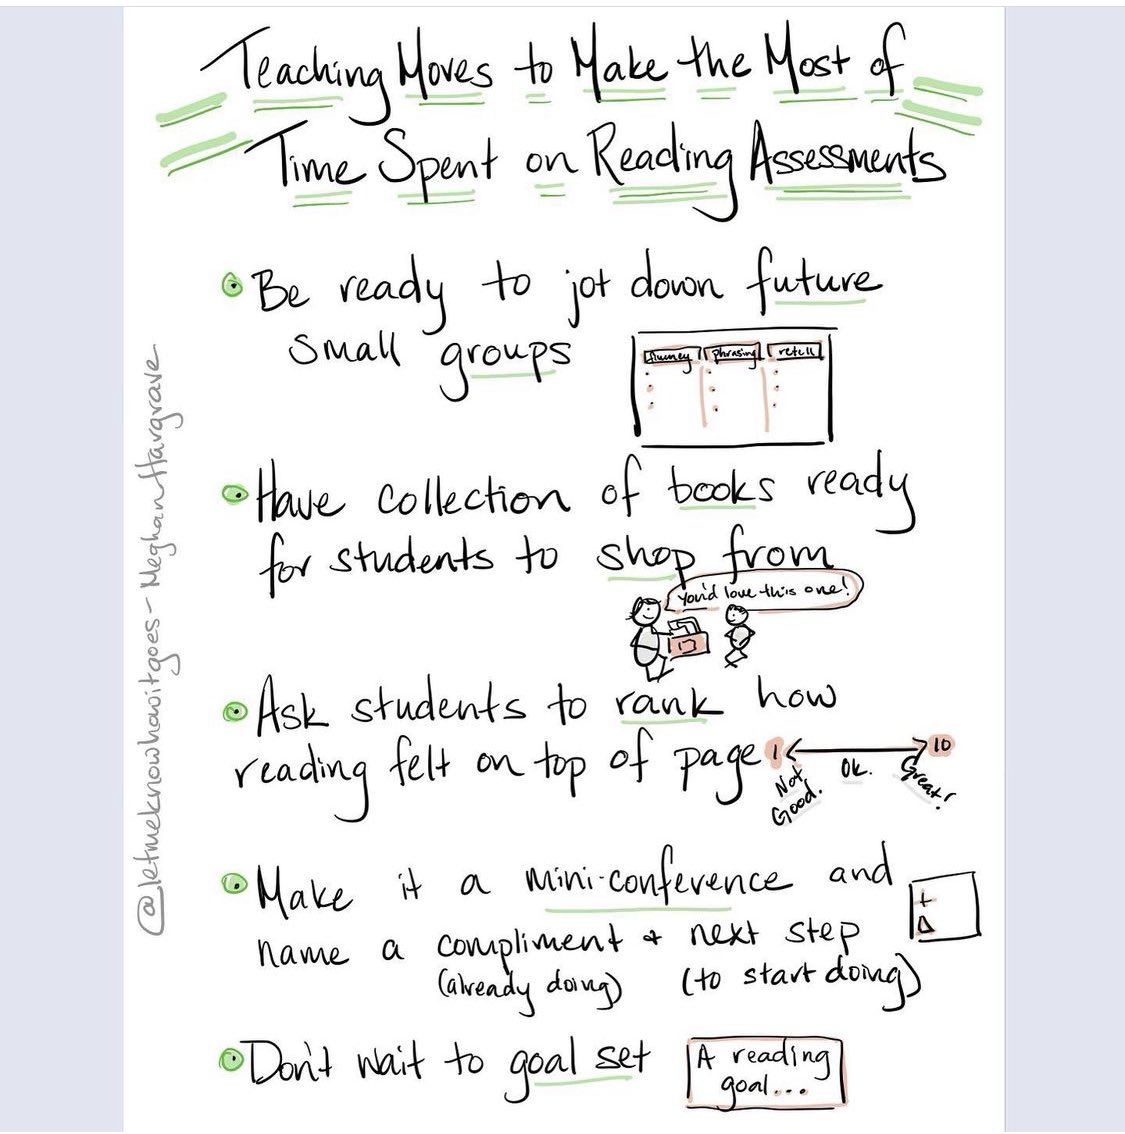 Teaching Moves to Make the Most of
Time Spent on Reading Assessments
Be ready to jot down future
small groups
fluency phrasing retell
Have collection of books ready
for students to shop from
You'd love this one!
Ask students to rank how
reading felt on top of page
1 10
Not Good.
Ok.
Great!
Make it a mini-conference and
name a compliment + next step
(already doing) (to start doing)
+
Δ
Don't wait to goal set
A reading
goal...
@letmeknowhowitgoes - Meghan Hargrave